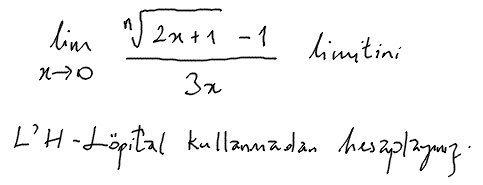 lim x→0 (ⁿ√(2x+1) - 1)/(3x) limitini
L'H-Löpital kullanmadan hesaplayınız.